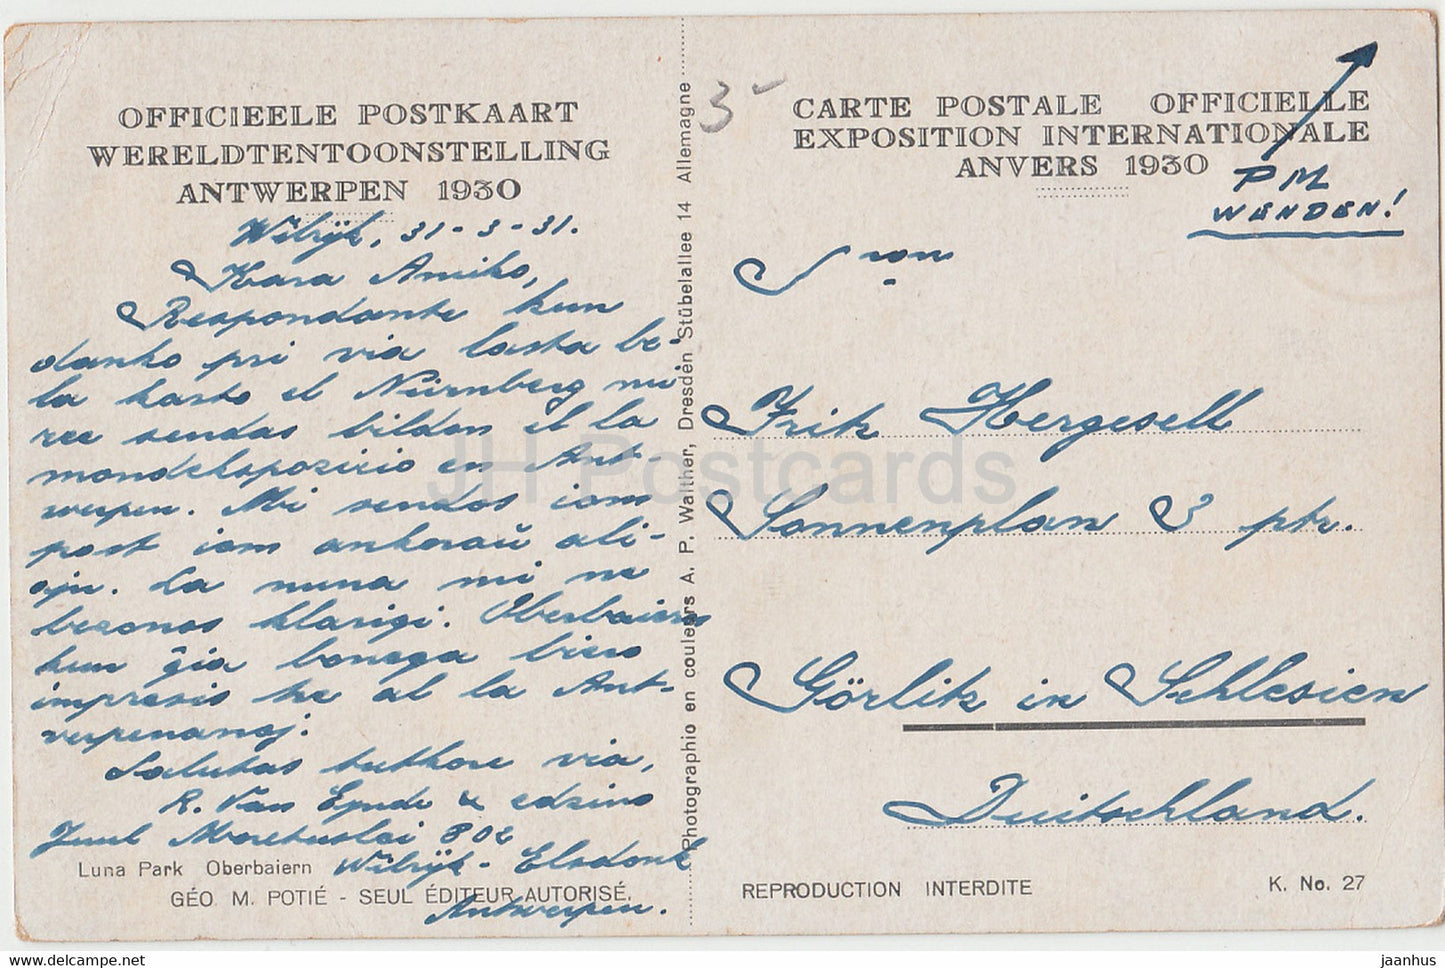 OFFICIEELE POSTKAART
WERELDTENTOONSTELLING
ANTWERPEN 1930
Wilrijk, 31-3-31.
Kara Amiko,
Respondante kun
danko pri via lasta be-
la karto el Nürnberg mi
ree sendas bildon el la
mondekspozicio en Ant-
werpen. Mi sendos iom
post iom ankoraŭ ali-
ajn. La nuna mi ne
bezonas klarigi. Oberbaiern
kun ĝia bonega biero
impresis tre al la Ant-
verpenanoj.
Salutas tutkore via,
R. Van Eynde & edzino
Juul Moretuslei 802
Wilrijk - Elsdonk
Antwerpen.
Luna Park Oberbaiern
GÉO M. POTIÉ - SEUL ÉDITEUR AUTORISÉ.
Photographie en couleurs A. P. Walther, Dresden Stübelallee 14 Allemagne
3-
CARTE POSTALE OFFICIELLE
EXPOSITION INTERNATIONALE
ANVERS 1930
PM
WENDEN!
Sron
Frik Hergesell
Sonnenplan 3 ptr.
Görlik in Schlesien
Duitschland.
REPRODUCTION INTERDITE
K. No. 27
JH Postcards
jaanhus